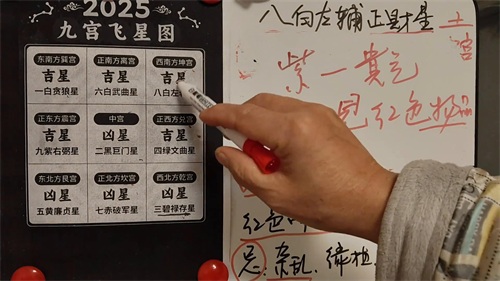 2025
九宫飞星图
东南方巽宫 正南方离宫 西南方坤宫
吉星 吉星 吉星
一白贪狼星 六白武曲星 八白左
正东方震宫 中宫 正西方兑宫
吉星 凶星 吉星
九紫右弼星 二黑巨门星 四绿文曲星
东北方艮宫 正北方坎宫 西北方乾宫
凶星 凶星 凶星
五黄廉贞星 七赤破军星 三碧禄存星
八白左辅 正财星 土
宫
紫一 气
红色物品
红色
忌:杂乱,绿植